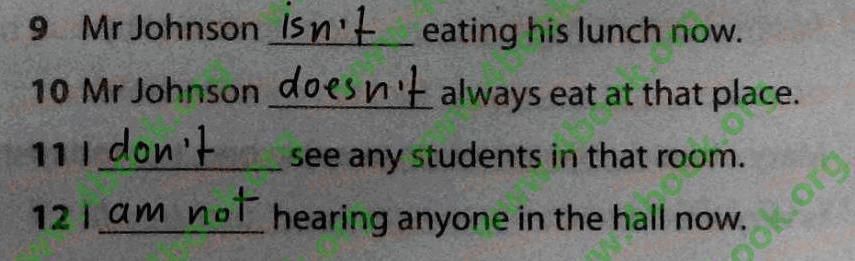 9 Mr Johnson isn't eating his lunch now.
10 Mr Johnson doesn't always eat at that place.
11 I don't see any students in that room.
12 I am not hearing anyone in the hall now.